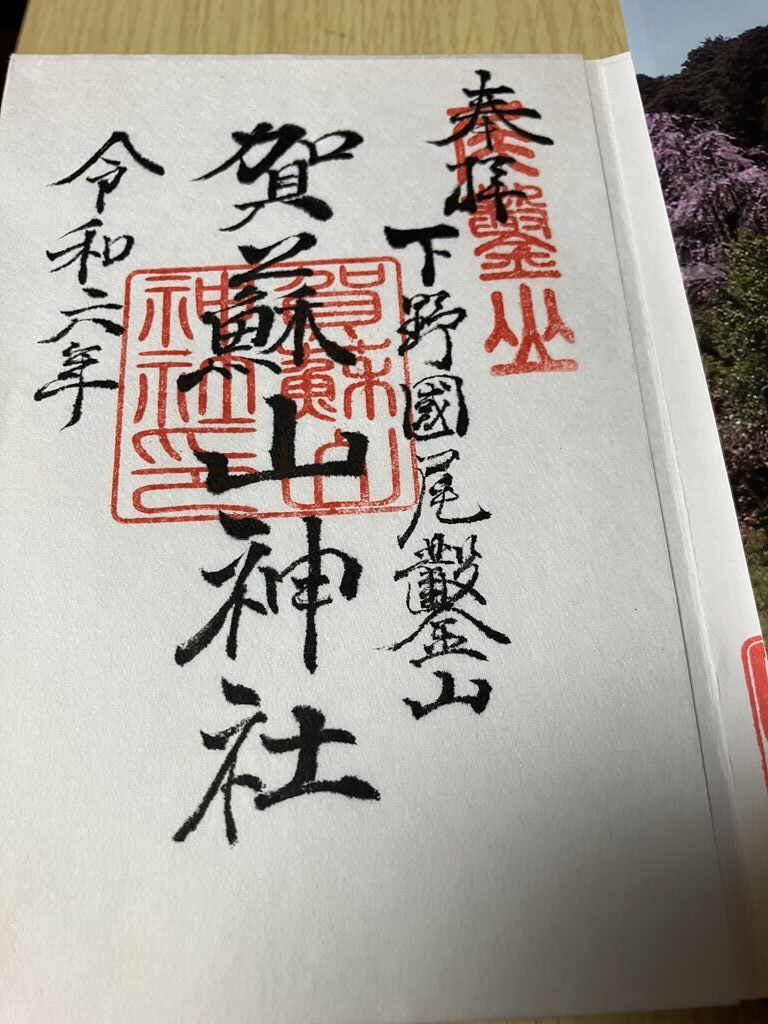 奉拝
下野國尾鑿山
賀蘇山神社
令和六年
尾鑿山
賀蘇山
神社印